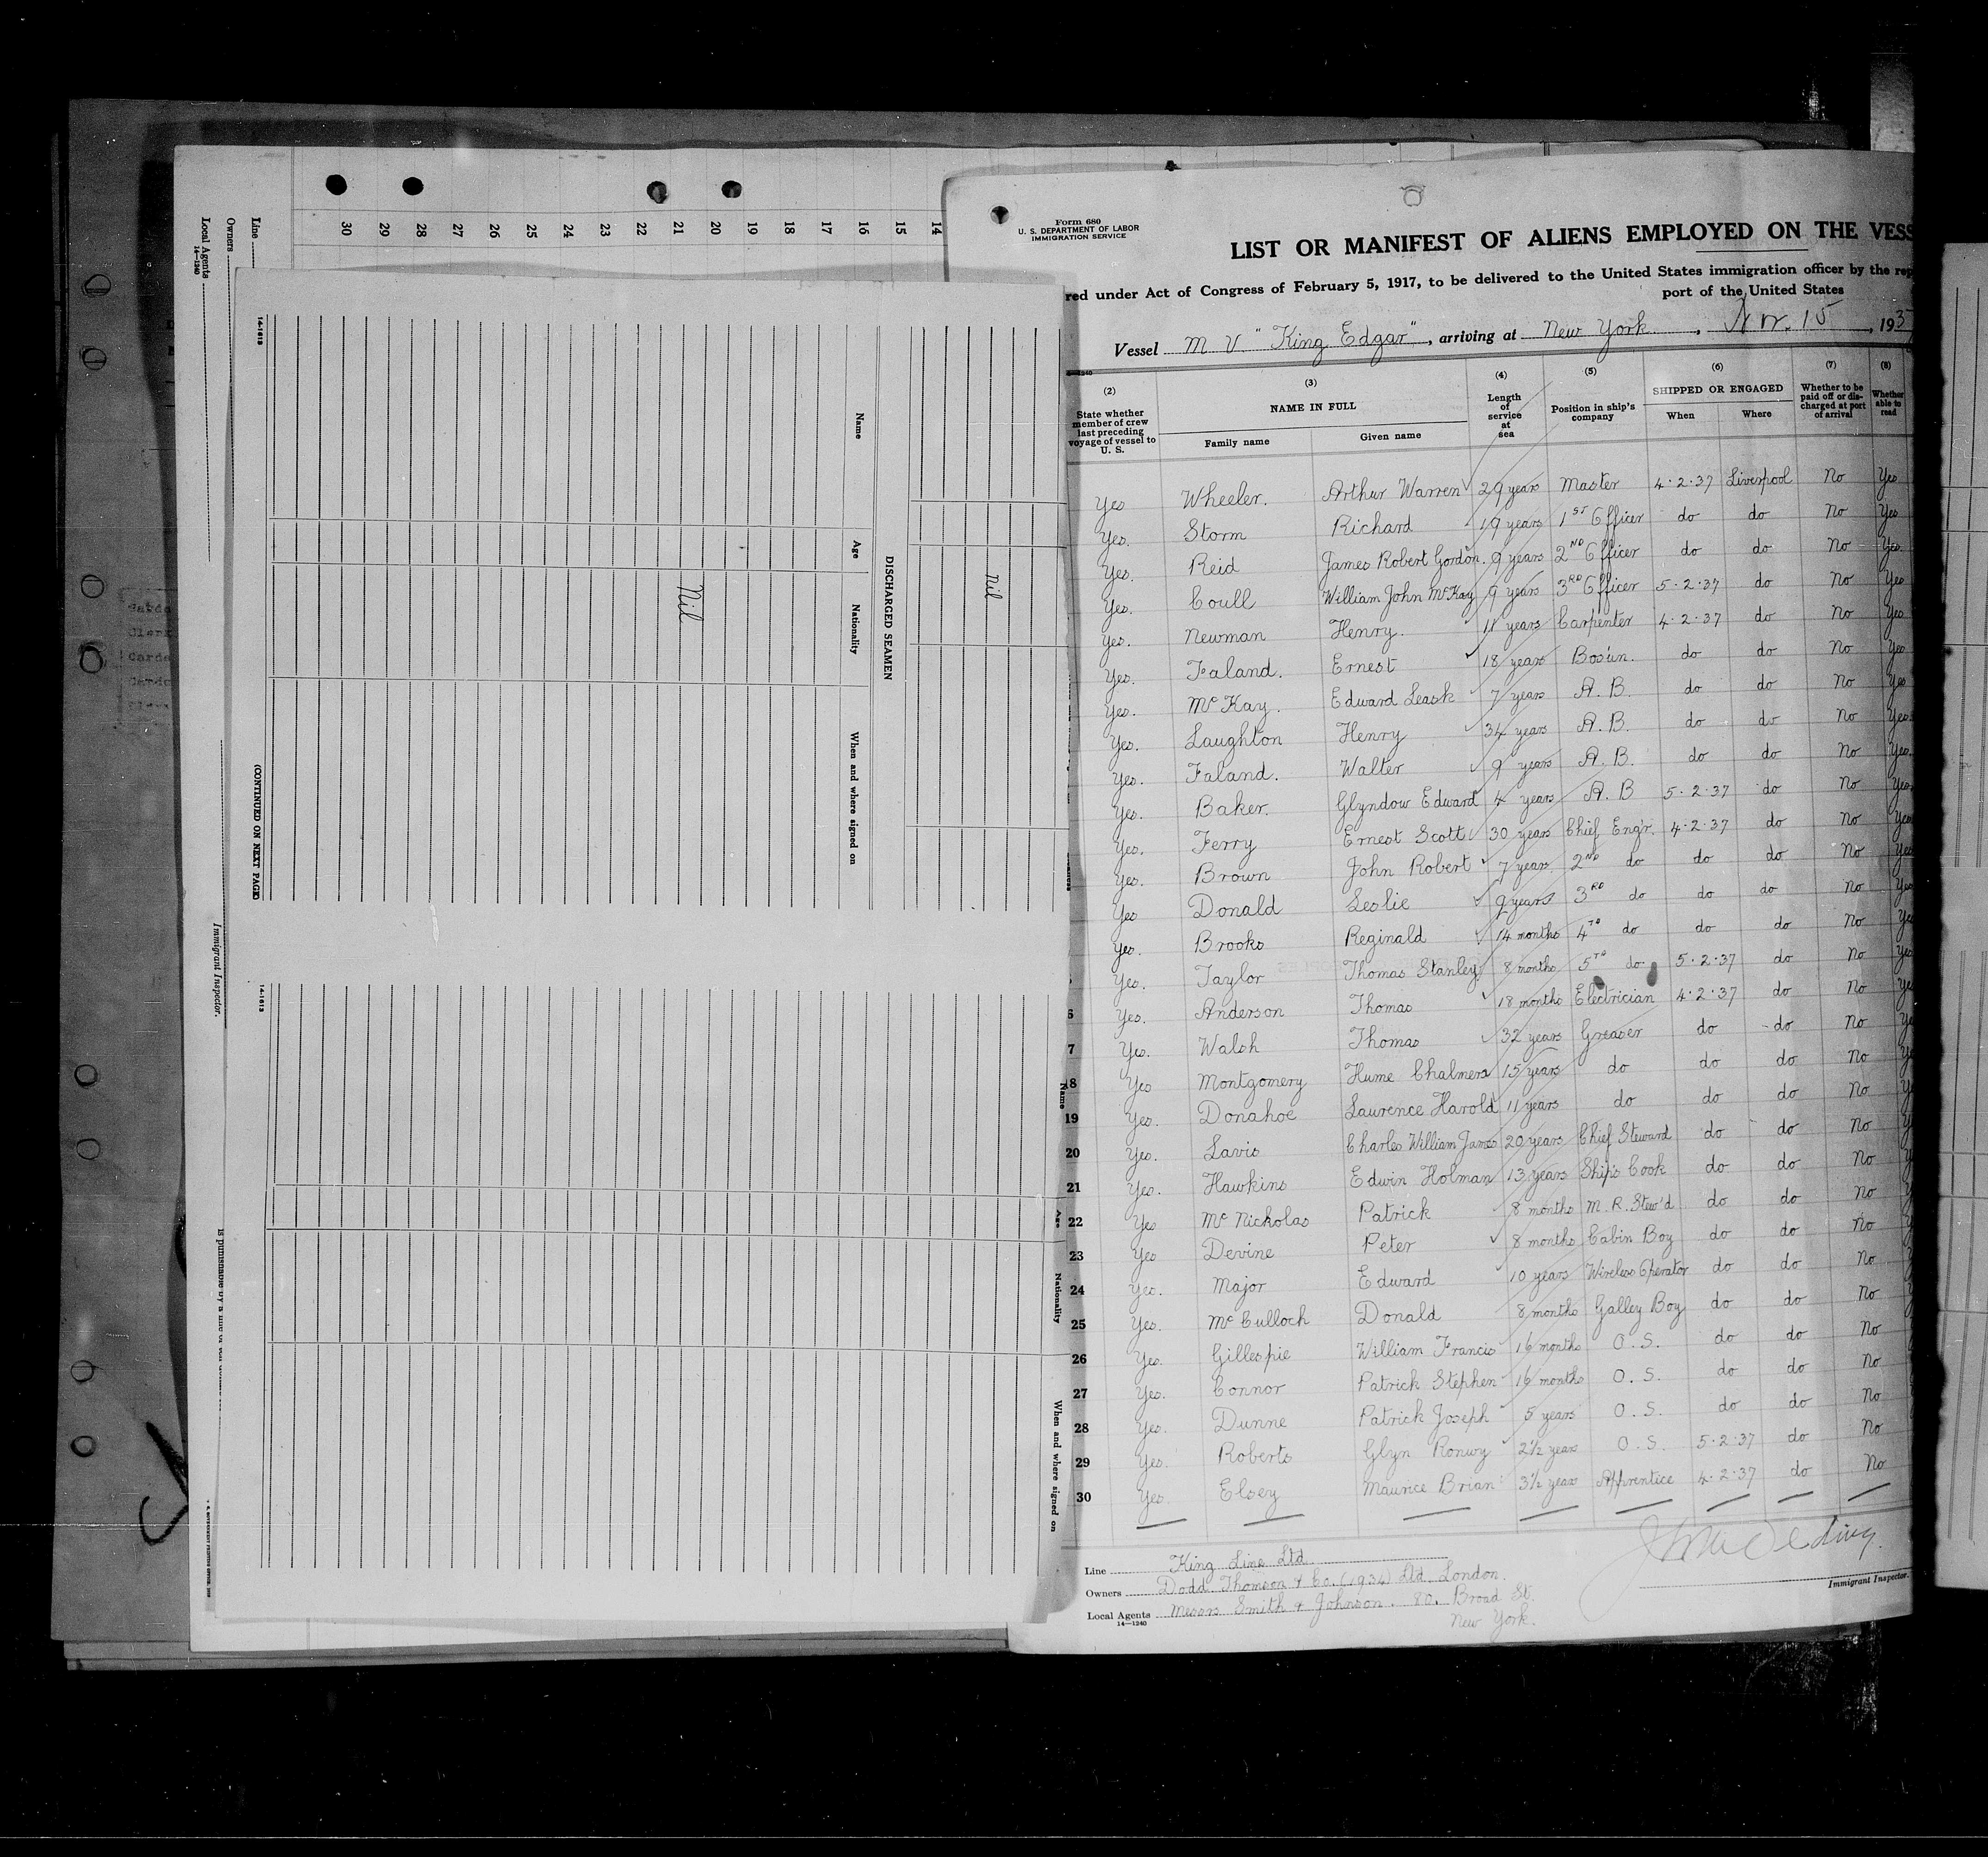 Form 680
U. S. DEPARTMENT OF LABOR
IMMIGRATION SERVICE
LIST OR MANIFEST OF ALIENS EMPLOYED ON THE VESS
red under Act of Congress of February 5, 1917, to be delivered to the United States immigration officer by the rep
port of the United States
Vessel M V "King Edgar", arriving at New York, 15, 193
(2) (3) (4) (5) (6) (7) (8)
State whether member of crew last preceding voyage of vessel to U. S.
NAME IN FULL
Family name Given name
Length of service at sea
Position in ship's company
SHIPPED OR ENGAGED
When Where
Whether to be paid off or discharged at port of arrival
Whether able to read
Yes Wheeler. Arthur Warren 29 years Master 4·2·37 Liverpool No Yes
Yes. Storm Richard 19 years 1ST Officer do do No Yes
Yes. Reid James Robert Gordon. 9 years 2ND Officer do do No Yes.
Yes. Coull William John McKay 9 years 3RD Officer 5·2·37 do No Yes
Yes. Newman Henry. 11 years Carpenter 4·2·37 do No Yes
Yes. Faland. Ernest 18 years Bos'un. do do No Yes
Yes. McKay. Edward Leask 7 years A. B. do do No Yes
Yes. Laughton Henry 34 years A. B. do do No Yes.
Yes. Faland. Walter 9 years A. B. do do No Yes.
Yes. Baker. Glyndow Edward 4 years A. B 5·2·37 do No Yes.
Yes. Ferry Ernest Scott 30 years Chief Eng'r. 4·2·37 do No Yes
Yes. Brown John Robert 7 years 2ND do do do No Yes
Yes Donald Leslie 9 years 3RD do do do No Yes
Yes. Brooks Reginald 14 months 4TH do do do No Yes
Yes. Taylor Thomas Stanley. 8 months 5TH do 5·2·37 do No Yes
6 Yes. Anderson Thomas 18 months Electrician 4·2·37 do No Ye
7 Yes. Walsh Thomas 32 years Greaser do do No Ye
18 Yes Montgomery Hume Chalmers 15 years do do do No Y
19 Yes. Donahoe Laurence Harold 11 years do do do No Y
20 Yes. Lavis Charles William James 20 years Chief Steward do do No Y
21 Yes. Hawkins Edwin Holman 13 years Ship's Cook do do No Y
22 Yes McNicholas Patrick 8 months M. R. Stew'd do do No Y
23 Yes Devine Peter 8 months Cabin Boy do do No Y
24 Yes. Major Edward 10 years Wireless Operator do do No
25 Yes. McCulloch Donald 8 months Galley Boy do do No
26 Yes. Gillespie William Francis 16 months O. S. do do No
27 Yes. Connor Patrick Stephen 16 months O. S. do do No
28 Yes. Dunne Patrick Joseph 5 years O. S. do do No
29 Yes. Roberts Glyn Ronwy 2½ years O. S. 5·2·37 do No
30 Yes. Elsey Maurice Brian 3½ years Apprentice 4·2·37 do No
Line King Line Ltd
Owners Dodd. Thomson & Co. (1934) Ltd. London.
Local Agents Messrs Smith & Johnson. 80. Broad St.
New York.
14—1240
Immigrant Inspector.
Line
Owners
Local Agents
14—1240
30 29 28 27 26 25 24 23 22 21 20 19 18 17 16 15 14
Nil
DISCHARGED SEAMEN
Name Age Nationality When and where signed on
Nil
14-1613
(CONTINUED ON NEXT PAGE)
Immigrant Inspector.
Name Age Nationality When and where signed on
14-1613